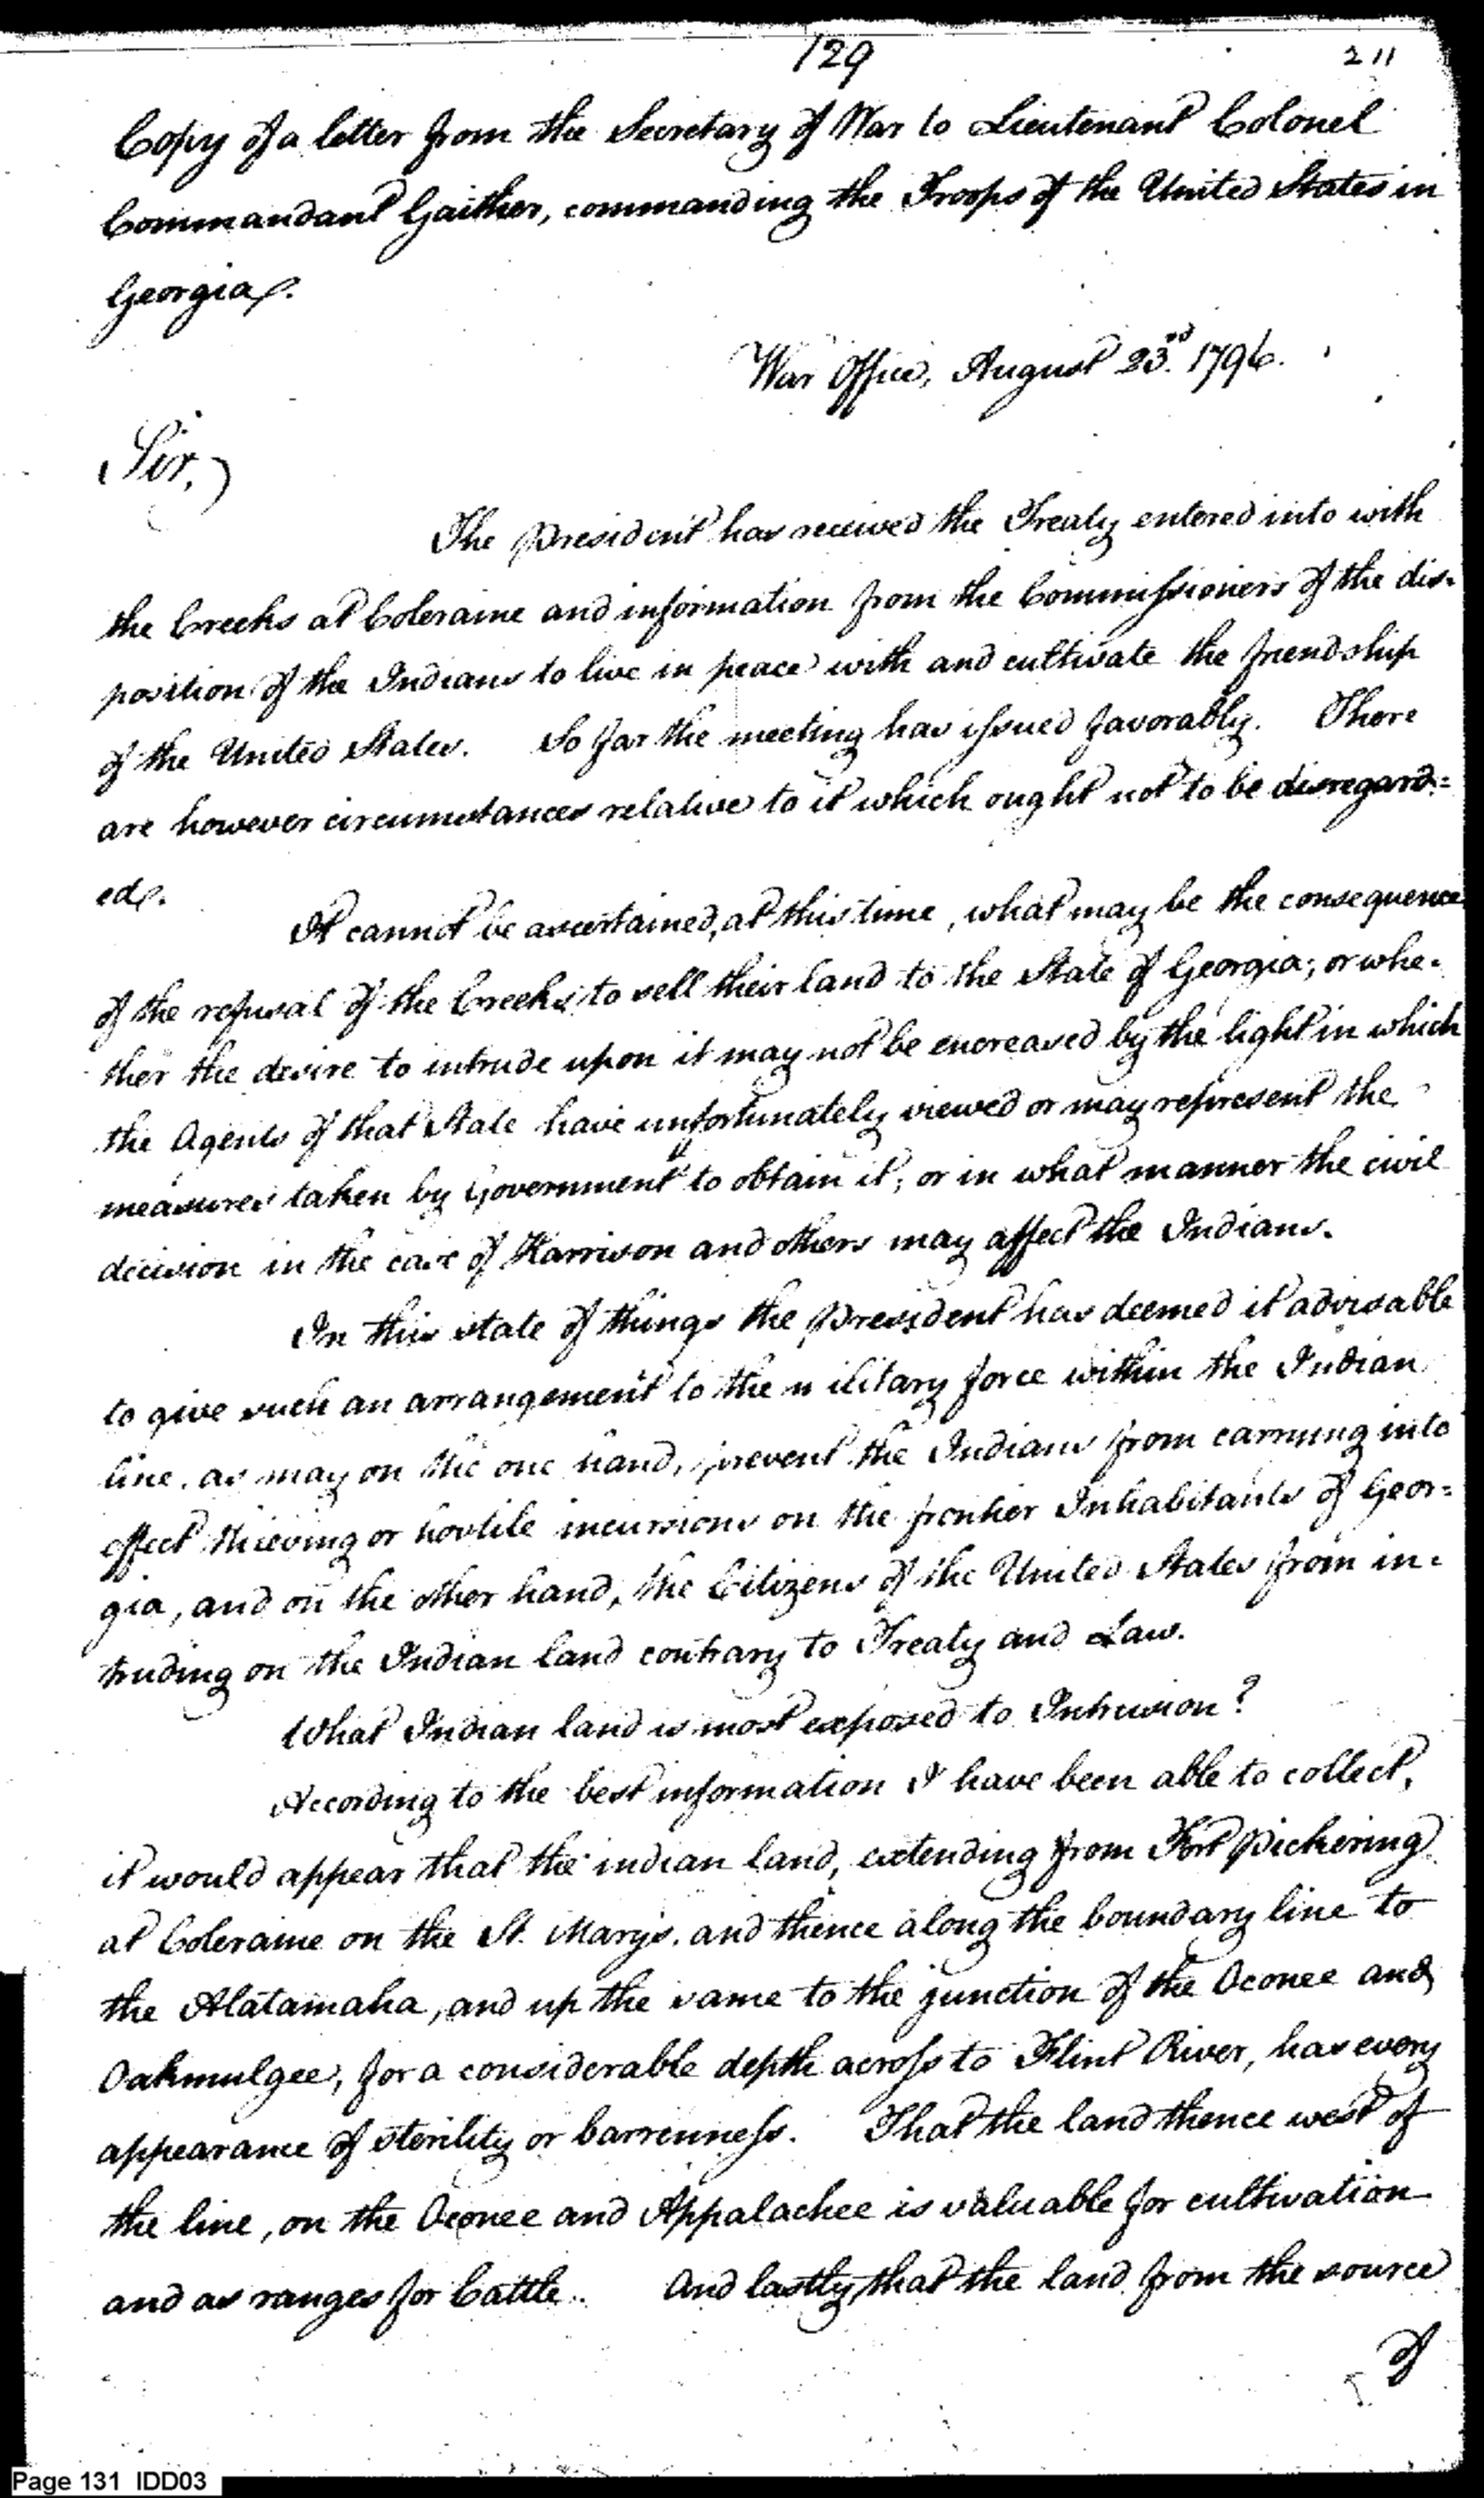 129
211
Copy of a letter from the Secretary of War to Lieutenant Colonel
Commandant Gaither, commanding the Troops of the United States in
Georgia.
War Office, August 23.rd 1796.
Sir,
The President has received the Treaty entered into with
the Creeks at Coleraine and information from the Commissioners of the dis-
position of the Indians to live in peace with and cultivate the friendship
of the United States. So far the meeting has issued favorably. There
are however circumstances relative to it which ought not to be disregard=
ed.
It cannot be ascertained, at this time, what may be the consequence
of the refusal of the Creeks to sell their land to the State of Georgia; or whe-
ther the desire to intrude upon it may not be encreased by the light in which
the Agents of that State have unfortunately viewed or may represent the
measures taken by Government to obtain it; or in what manner the civil
decision in the case of Harrison and others may affect the Indians.
In this state of things the President has deemed it advisable
to give such an arrangement to the military force within the Indian
line, as may on the one hand, prevent the Indians from carrying into
effect thieving or hostile incursions on the frontier Inhabitants of Geor=
gia, and on the other hand, the Citizens of the United States from in-
truding on the Indian land contrary to Treaty and Law.
What Indian land is most exposed to Intrusion?
According to the best information I have been able to collect,
it would appear that the indian land, extending from Fort Pickering
at Coleraine on the St. Mary's, and thence along the boundary line to
the Alatamaha, and up the same to the junction of the Oconee and
Oakmulgee, for a considerable depth across to Flint River, has every
appearance of sterility or barrenness. That the land thence west of
the line, on the Oconee and Appalachee is valuable for cultivation
and as ranges for Cattle. And lastly, that the land from the source
of
Page 131 IDD03